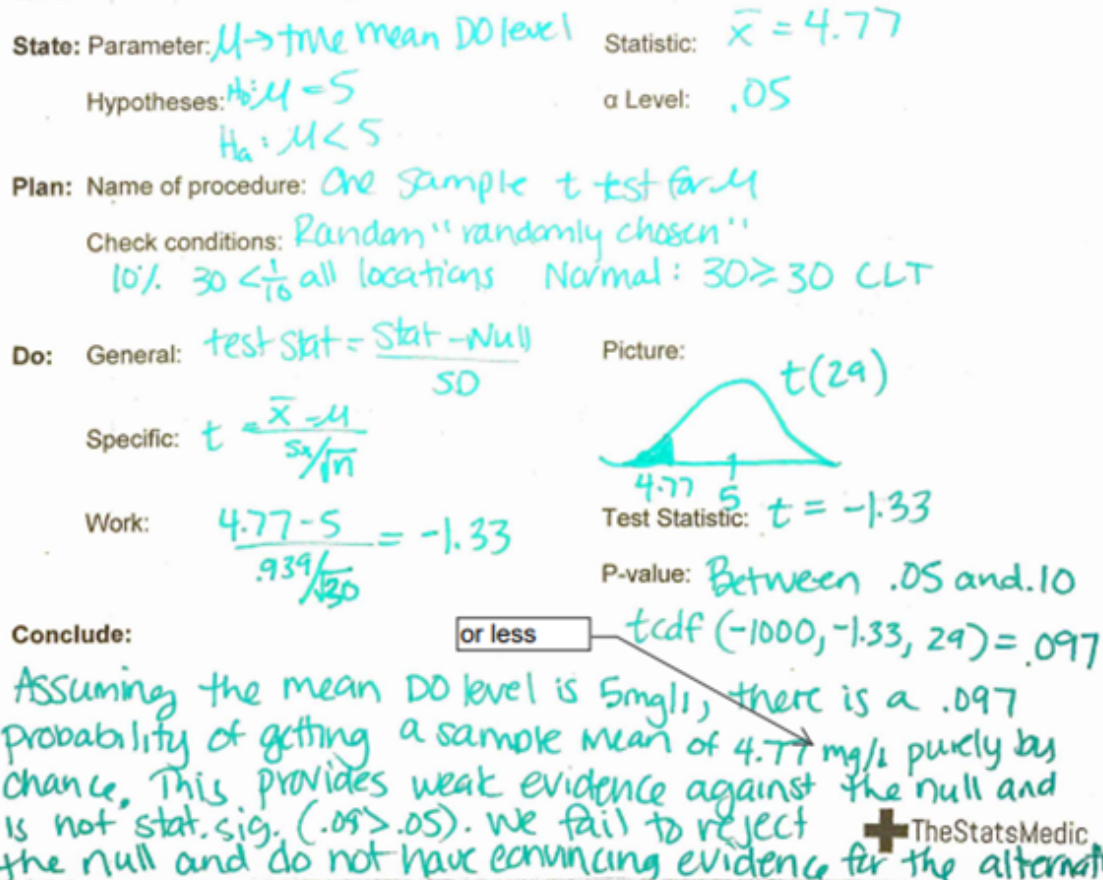 State: Parameter: μ→ true mean DO level Statistic: x̄ = 4.77
Hypotheses: H₀: μ = 5 α Level: .05
Hₐ: μ < 5
Plan: Name of procedure: One sample t test for μ
Check conditions: Random "randomly chosen"
10% 30 < 1/10 all locations Normal: 30 ≥ 30 CLT
Do: General: test stat = Stat - Null / SD Picture:
t(29)
Specific: t = x̄ - μ / sₓ/√n
4.77 5
Work: 4.77 - 5 / .939/√30 = -1.33 Test Statistic: t = -1.33
P-value: Between .05 and .10
Conclude: or less tcdf (-1000, -1.33, 29) = .097
Assuming the mean DO level is 5mg/l, there is a .097
probability of getting a sample mean of 4.77 mg/l purely by
chance. This provides weak evidence against the null and
is not stat. sig. (.09 > .05). We fail to reject TheStatsMedic
the null and do not have convincing evidence for the alternati